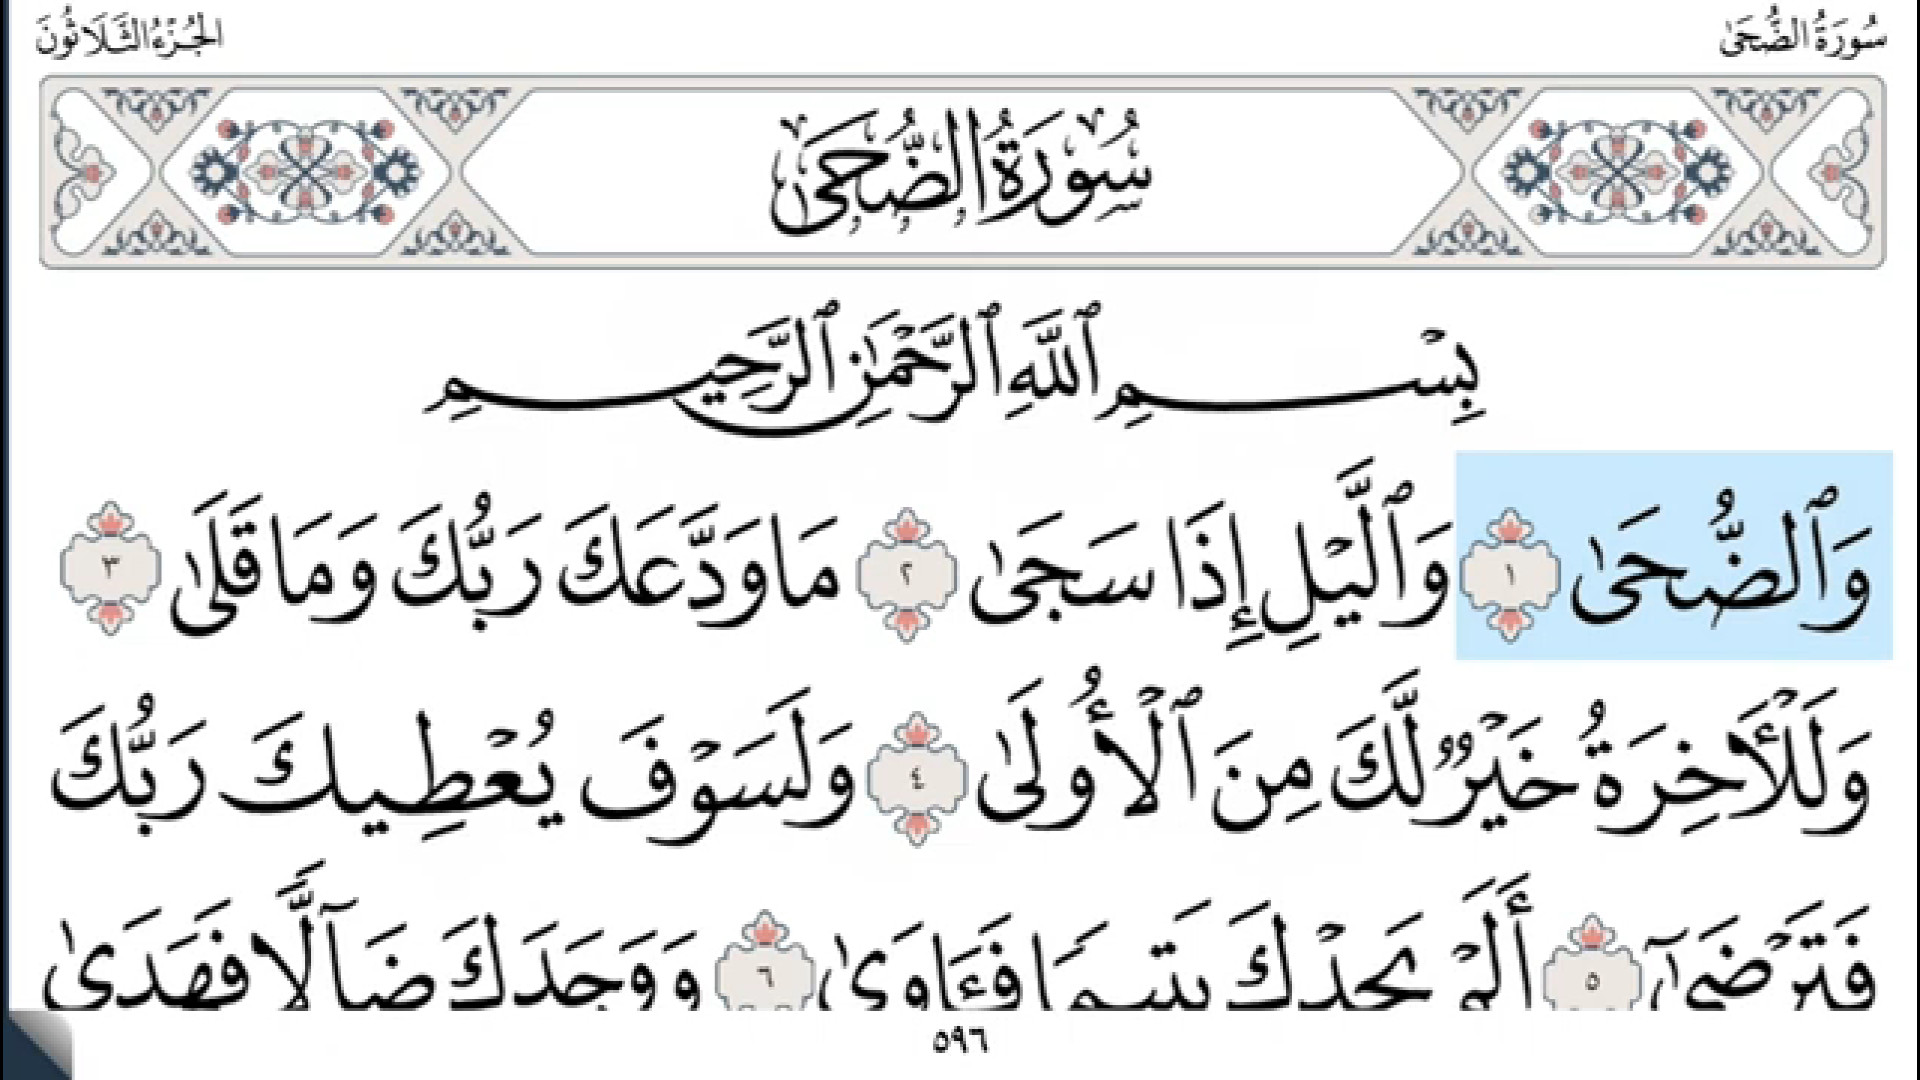 سُورَةُ الضُّحَىٰ
الجُزْءُ الثَّلَاثُونَ
سُورَةُ الضُّحَىٰ
بِسْمِ ٱللَّهِ ٱلرَّحْمَٰنِ ٱلرَّحِيمِ
وَٱلضُّحَىٰ ١ وَٱلَّيْلِ إِذَا سَجَىٰ ٢ مَا وَدَّعَكَ رَبُّكَ وَمَا قَلَىٰ ٣
وَلَلْأَخِرَةُ خَيْرٌ لَّكَ مِنَ ٱلْأُولَىٰ ٤ وَلَسَوْفَ يُعْطِيكَ رَبُّكَ
فَتَرْضَىٰٓ ٥ أَلَمْ يَجِدْكَ يَتِيمًا فَـَٔاوَىٰ ٦ وَوَجَدَكَ ضَآلًّا فَهَدَىٰ
٥٩٦